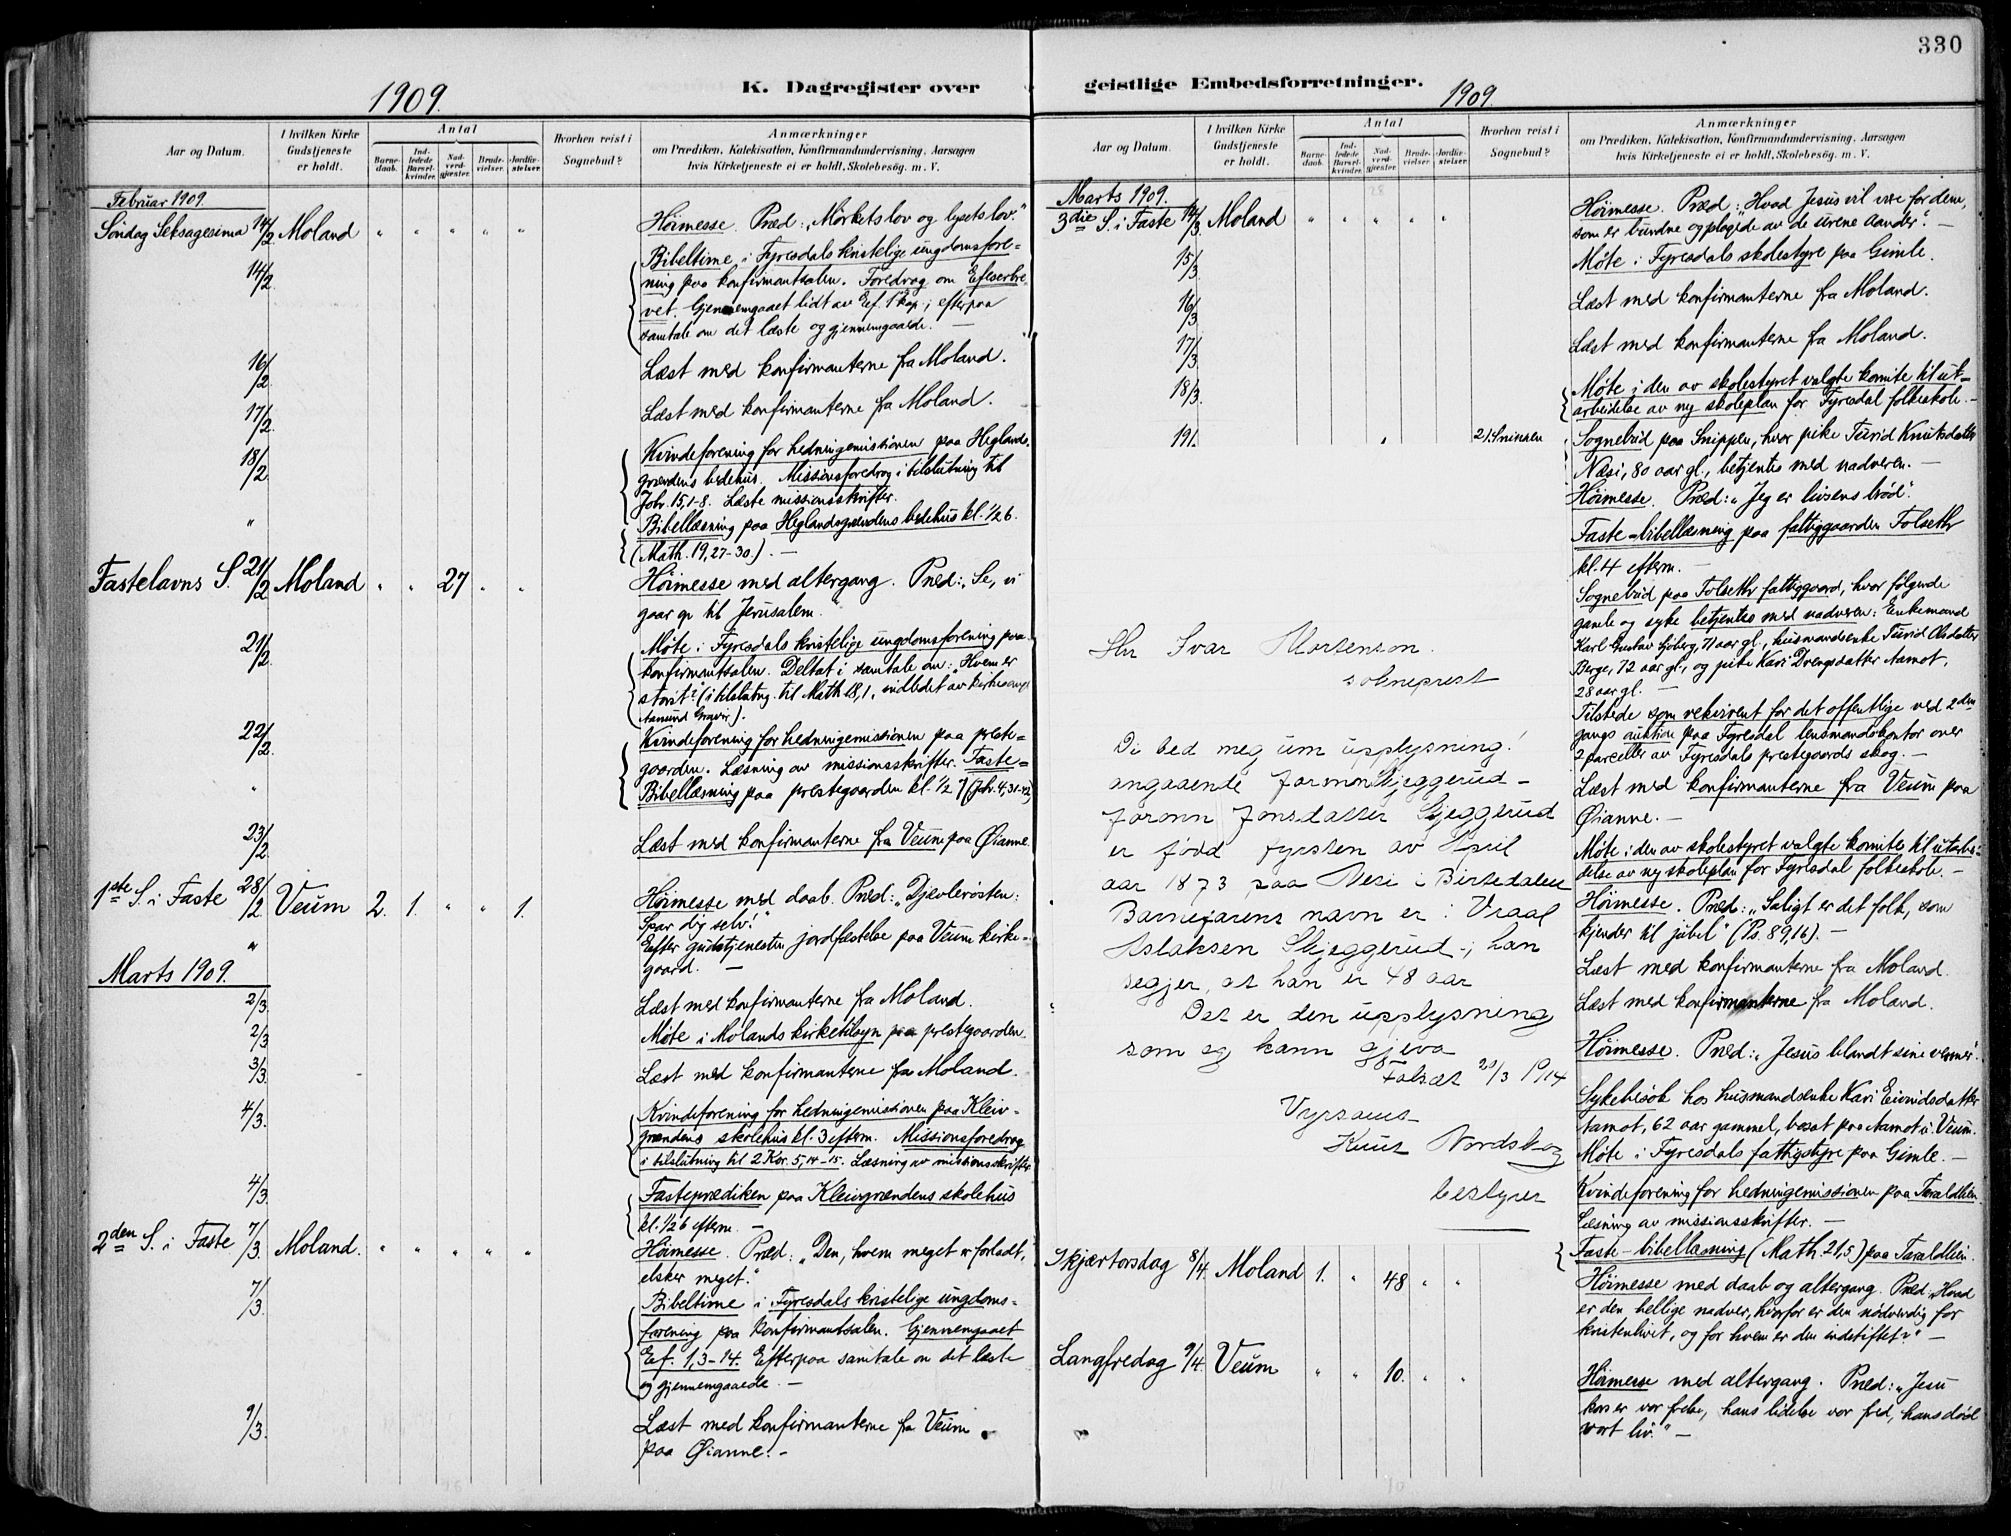 330
K. Dagregister over
1909.
Aar og Datum.
I hvilken Kirke Gudstjeneste er holdt.
Antal
Barne-daab.
Ind-ledede Barsel-kvinder.
Nad-verd-gjæster.
Brude-vielser.
Jordfæ-stelser.
Hvorhen reist i Sognebud?
Anmærkninger
om Prædiken, Katekisation, Konfirmandundervisning, Aarsagen
hvis Kirketjeneste ei er holdt, Skolebesøg. m. V.
Februar 1909.
Søndag Seksagesima 14/2 Moland " " " " " Høimesse. Præd: „Mørkets lov og lysets lov."
14/2 Bibeltime i Fyresdals kristelige ungdomsfore=
ning paa konfirmantsalen. Foredrag om Efeserbre
vet. Gjennemgaaet lidt av Ef. 1 kap; efterpaa
samtale om det læste og gjennemgaaede. —
16/2 Læst med konfirmanterne fra Moland.
17/2 Læst med konfirmanterne fra Moland.
18/2 Kvindeforening for hedningemissionen paa Heglands
grændens bedehus. Missionsforedrag i tilslutning til
Joh. 15,1-8. Læste missionsskrifter.
" Bibellæsning paa Heglandsgrændens bedehus kl. 1/2 6.
(Math. 19,27-30). —
Fastelavns S. 21/2 Moland " " 27 " " Høimesse med altergang. Præd: „Se, vi
gaar op til Jerusalem."
21/2 Møte i Fyresdals kristelige ungdomsforening paa
konfirmantsalen. Deltat i samtale om: „Hvem er
størst?" (i tilslutng. til Math 18,1, indledet av kirkesanger
Aamund Graver).
22/2 Kvindeforening for hedningemissionen paa preste=
gaarden. Læsning av missionsskrifter. Faste=
" Bibellæsning paa prestegaarden kl. 1/2 7 (Joh. 4,31-42)
23/2 Læst med konfirmanterne fra Veum paa Øianne.
1ste S. i Faste 28/2 Veum 2. 1. " " 1. Høimesse med daab. Præd: „Djævlerøsten:
Spar dig selv!"
" Efter gudstjenesten jordfæstelse paa Veum kirke-
gaard. —
Marts 1909.
2/3 Læst med konfirmanterne fra Moland.
2/3 Møte i Molands kirketilsyn paa prestegaarden.
3/3 Læst med konfirmanterne fra Moland.
4/3. Kvindeforening for hedningemissionen paa Kleiv-
grændens skolehus kl. 3 efterm. Missionsforedrag
i tilslutning til 2 Kor. 5,14-15. Læsning av missionsskrifter
4/3 Fasteprædiken paa Kleivgrændens skolehus
kl. 1/2 6 efterm. —
2den S. i Faste 7/3. Moland. " " " " " Høimesse. Præd: „Den, hvem meget er forladt,
elsker meget."
7/3. Bibeltime i Fyresdals kristelige ungdoms=
forening paa konfirmantsalen. Gjennemgaaet
Ef. 1,3-14. Efterpaa samtale om det læste
og gjennemgaaede. —
9/3. Læst med konfirmanterne fra Veum
paa Øianne. –
geistlige Embedsforretninger.
1909.
Aar og Datum.
I hvilken Kirke Gudstjeneste er holdt.
Antal
Barne-daab.
Ind-ledede Barsel-kvinder.
Nad-verd-gjæster.
Brude-vielser.
Jordfæ-stelser.
Hvorhen reist i Sognebud?
Anmærkninger
om Prædiken, Katekisation, Konfirmandundervisning, Aarsagen
hvis Kirketjeneste ei er holdt, Skolebesøg. m. V.
Marts 1909.
3die S. i Faste 14/3 Moland " " " " " Høimesse. Præd: „Hvad Jesus vil være for dem,
som er bundne og plagede av de urene aander". —
15/3. Møte i Fyresdals skolestyre paa Gimle.
16/3 Læst med konfirmanterne fra Moland.
17/3 Læst med konfirmanterne fra Moland.
18/3. Møte i den av skolestyret valgte komite til ut=
arbeidelse av ny skoleplan for Fyresdal folkeskole. –
19/. 2). Snippen Sognebud paa Snippen, hvor pike Turid Knutsdatter
Næsi, 80 aar gl., betjentes med nadveren. —
Høimesse. Præd: „Jeg er livsens brød".
Faste-bibellæsning paa fattiggaarden Folseth
kl. 4 efterm. —
Sognebud paa Folseth fattiggaard, hvor følgende
gamle og syke betjentes med nadveren: Enkemand
Karl Gustav Gjøberg, 71 aar gl., husmandsenke Turid Olsdatter
Berge, 72 aar gl., og pike Kari Drengsdatter Aamot,
28 aar gl. —
Tilstede som rekvirent for det offentlige ved 2den
gangs auktion paa Fyresdal lensmandskontor over
2 parceller av Fyresdals prestegaards skog. —
Læst med konfirmanterne fra Veum paa
Øianne. —
Møte i den av skolestyret valgte komite til utarbei=
delse av ny skoleplan for Fyresdal folkeskole. —
Høimesse. Præd: „Saligt er det folk, som
kjender til jubel" (Ps. 89,16). —
Læst med konfirmanterne fra Moland.
Læst med konfirmanterne fra Moland.
Høimesse. Præd: „Jesus blandt sine venner".
Sykebesøk hos husmandsenke Kari Eivindsdatter
Aamot, 62 aar gammel, bosat paa Aamot i Veum.
Møte i Fyresdals fattigstyre paa Gimle. —
Kvindeforening for hedningemissionen paa Taraldlien.
Læsning av missionsskrifter. —
Faste-bibellæsning (Math. 21,5) paa Taraldlien.
Hr Ivar Mortenson.
sokneprest
Di bed meg um upplysning!
angaaende Joronn Skjeggerud –
Joronn Jonsdatter Skjeggerud
er fødd fyrsten av April
aar 1873 paa Nesi i Birtedalen
Barnefarens navn er: Vraal
Aslaksen Skjeggerud –; han
segjer, at han er 48 aar
Det er den upplysning
som eg kann gjeva
Folsæt 20/3 1914
Vyrsamt
Knut Nordskog
bestyrer
Skjærtorsdag 8/4. Moland 1. " 48 " " Høimesse med daab og altergang. Præd: „Hvad
er den hellige nadver, hvorfor er den nødvendig for
kristenlivet, og for hvem er den indstiftet?" —
Langfredag 9/4. Veum " " 10. " " Høimesse med altergang. Præd: „Jesu
kors er vor frelse, hans lidelse vor fred, hans død
vort liv." —